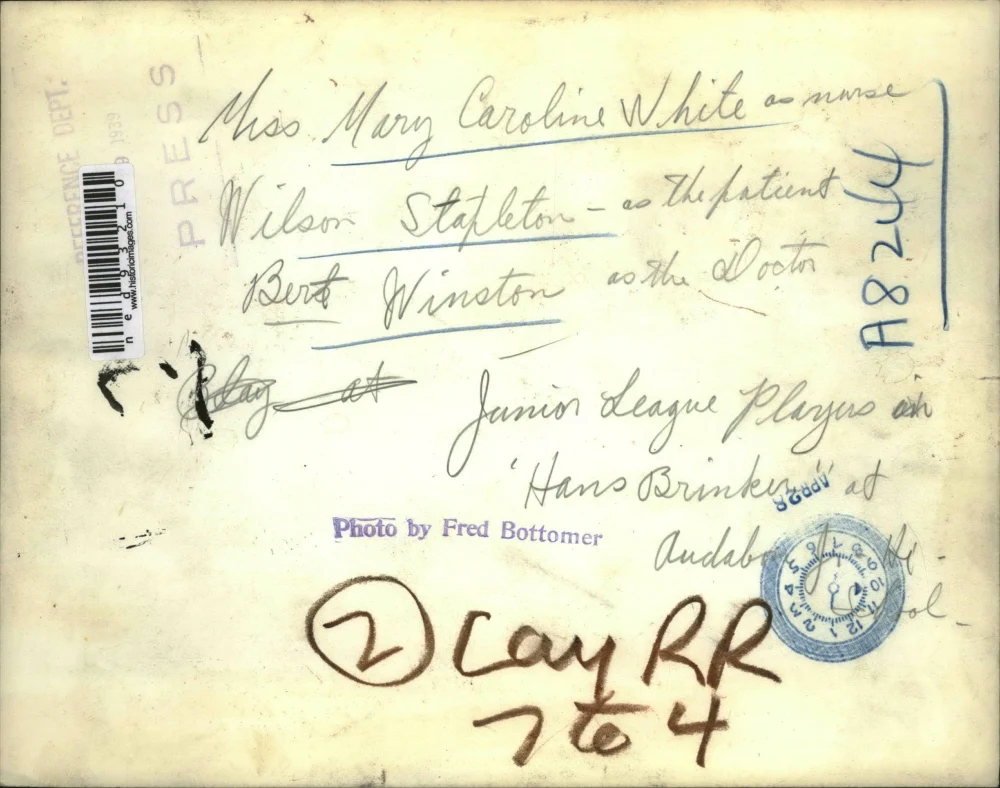 Miss Mary Caroline White as nurse
Wilson Stapleton - as the patient
Bert Winston as the Doctor
Play at
Junior League Players in
"Hans Brinker" at
Audabon Jr Hi -
School -
Photo by Fred Bottomer
2 Cay RR
7 to 4
A8244
PRESS
REFERENCE DEPT.
9 1939
ned93210
www.historicimages.com
APR 28
1 2 3 4 5 6 7 8 9 10 11 12